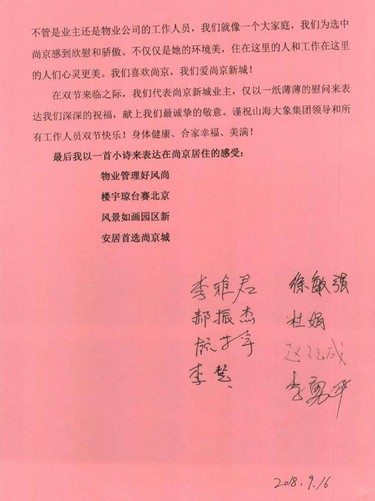 不管是业主还是物业公司的工作人员，我们就像一个大家庭，我们为选中
尚京感到欣慰和骄傲。不仅仅是她的环境美，住在这里的人和工作在这里
的人们心灵更美。我们喜欢尚京，我们爱尚京新城！
在双节来临之际，我们代表尚京新城业主，仅以一纸薄薄的慰问来表
达我们深深的祝福，献上我们最诚挚的敬意。谨祝山海大象集团领导和所
有工作人员双节快乐！身体健康、合家幸福、美满！
最后我以一首小诗来表达在尚京居住的感受：
物业管理好风尚
楼宇琼台赛北京
风景如画园区新
安居首选尚京城
李雅君 徐敏强
郝振杰 杜娟
李慧
2018.9.16